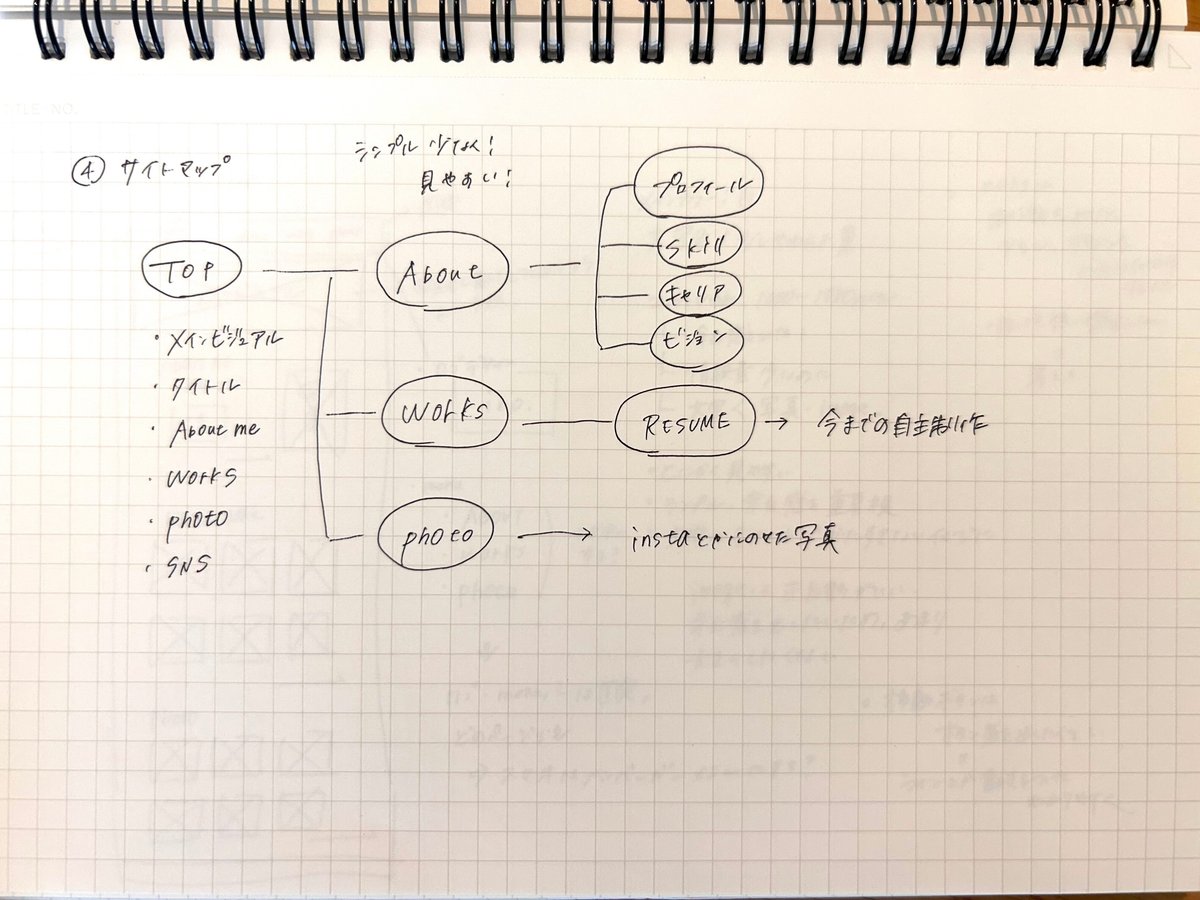 TLE・NO.
④ サイトマップ
シンプル 少なく!
見やすい!
TOP
・メインビジュアル
・タイトル
・About me
・works
・photo
・SNS
About
プロフィール
Skill
キャリア
ビジョン
works
RESUME → 今までの自主制作
photo → instaとかにのせた写真